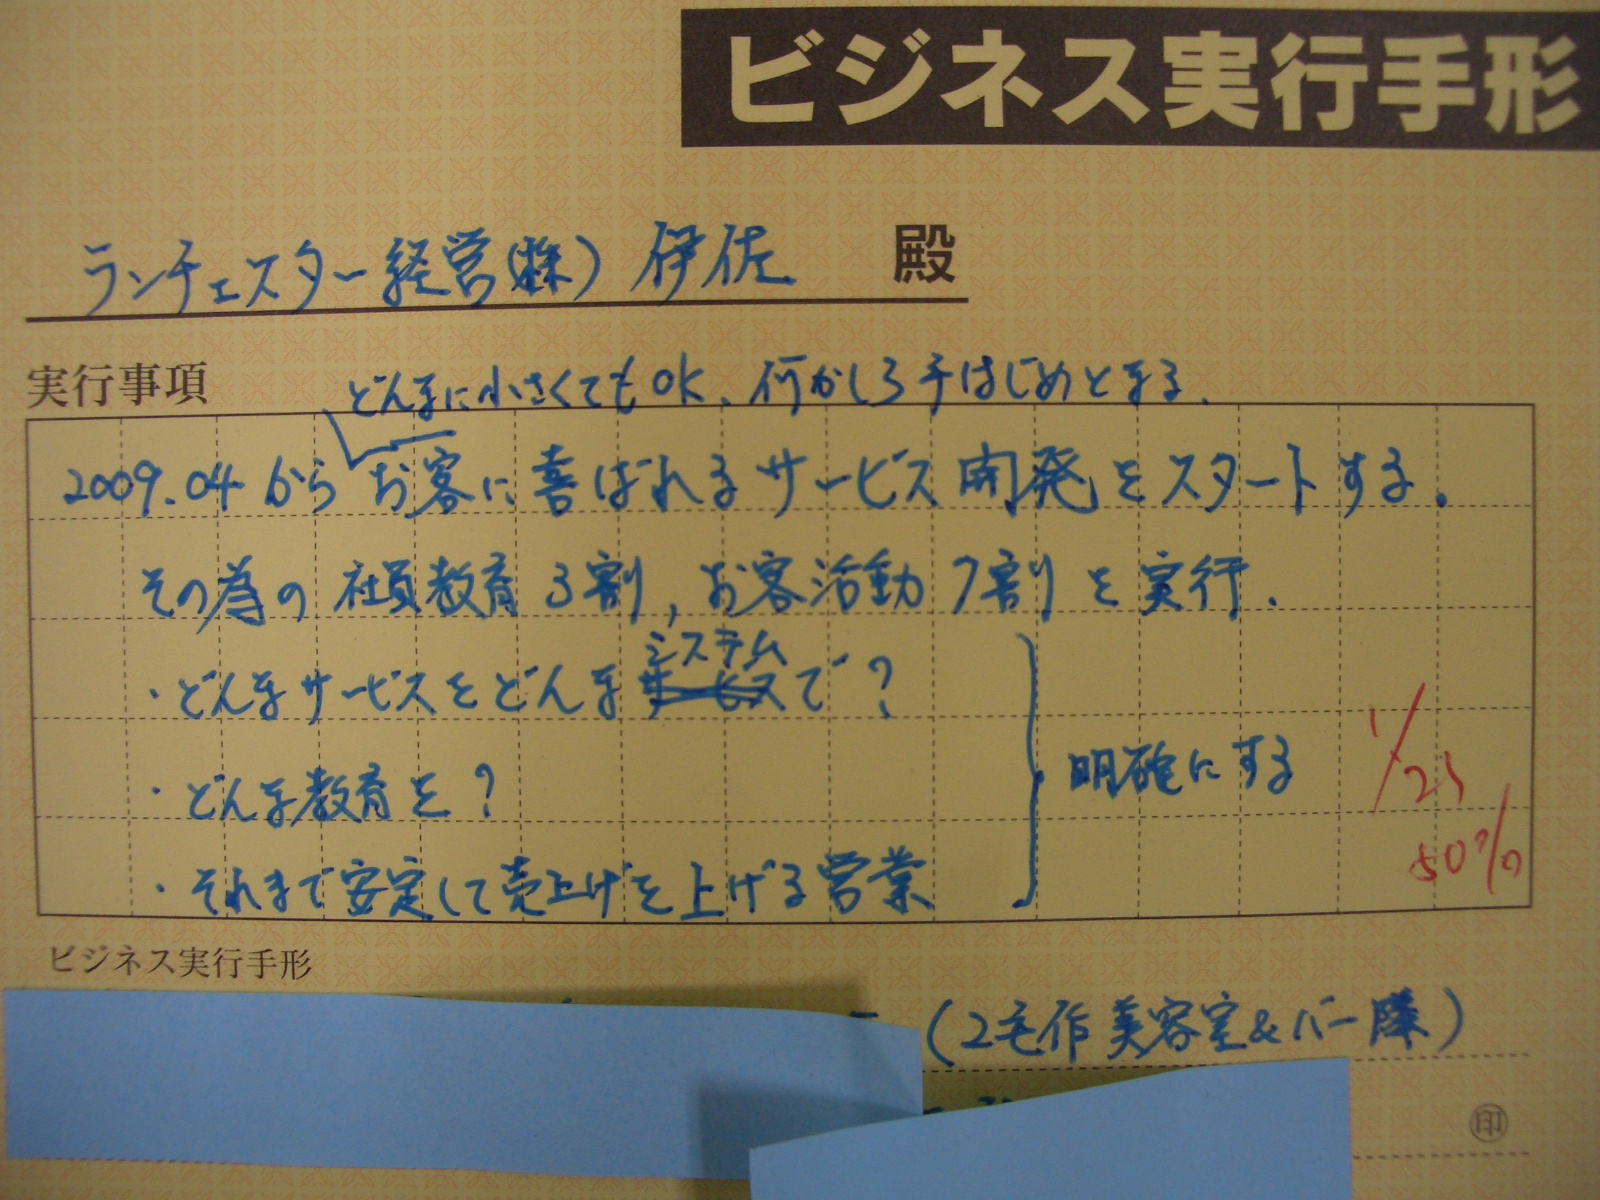 ビジネス実行手形
ランチェスター経営(株) 伊佐 殿
実行事項
どんなに小さくてもOK、何かしら手はじめとする、
2009.04から お客に喜ばれるサービス開発をスタートする。
その為の社員教育3割,お客活動7割を実行.
システム
・どんなサービスをどんなサービスで?
・どんな教育を?
・それまで安定して売上げを上げる営業
明確にする
1/25
50%
ビジネス実行手形
(2毛作美容室&バー)
印